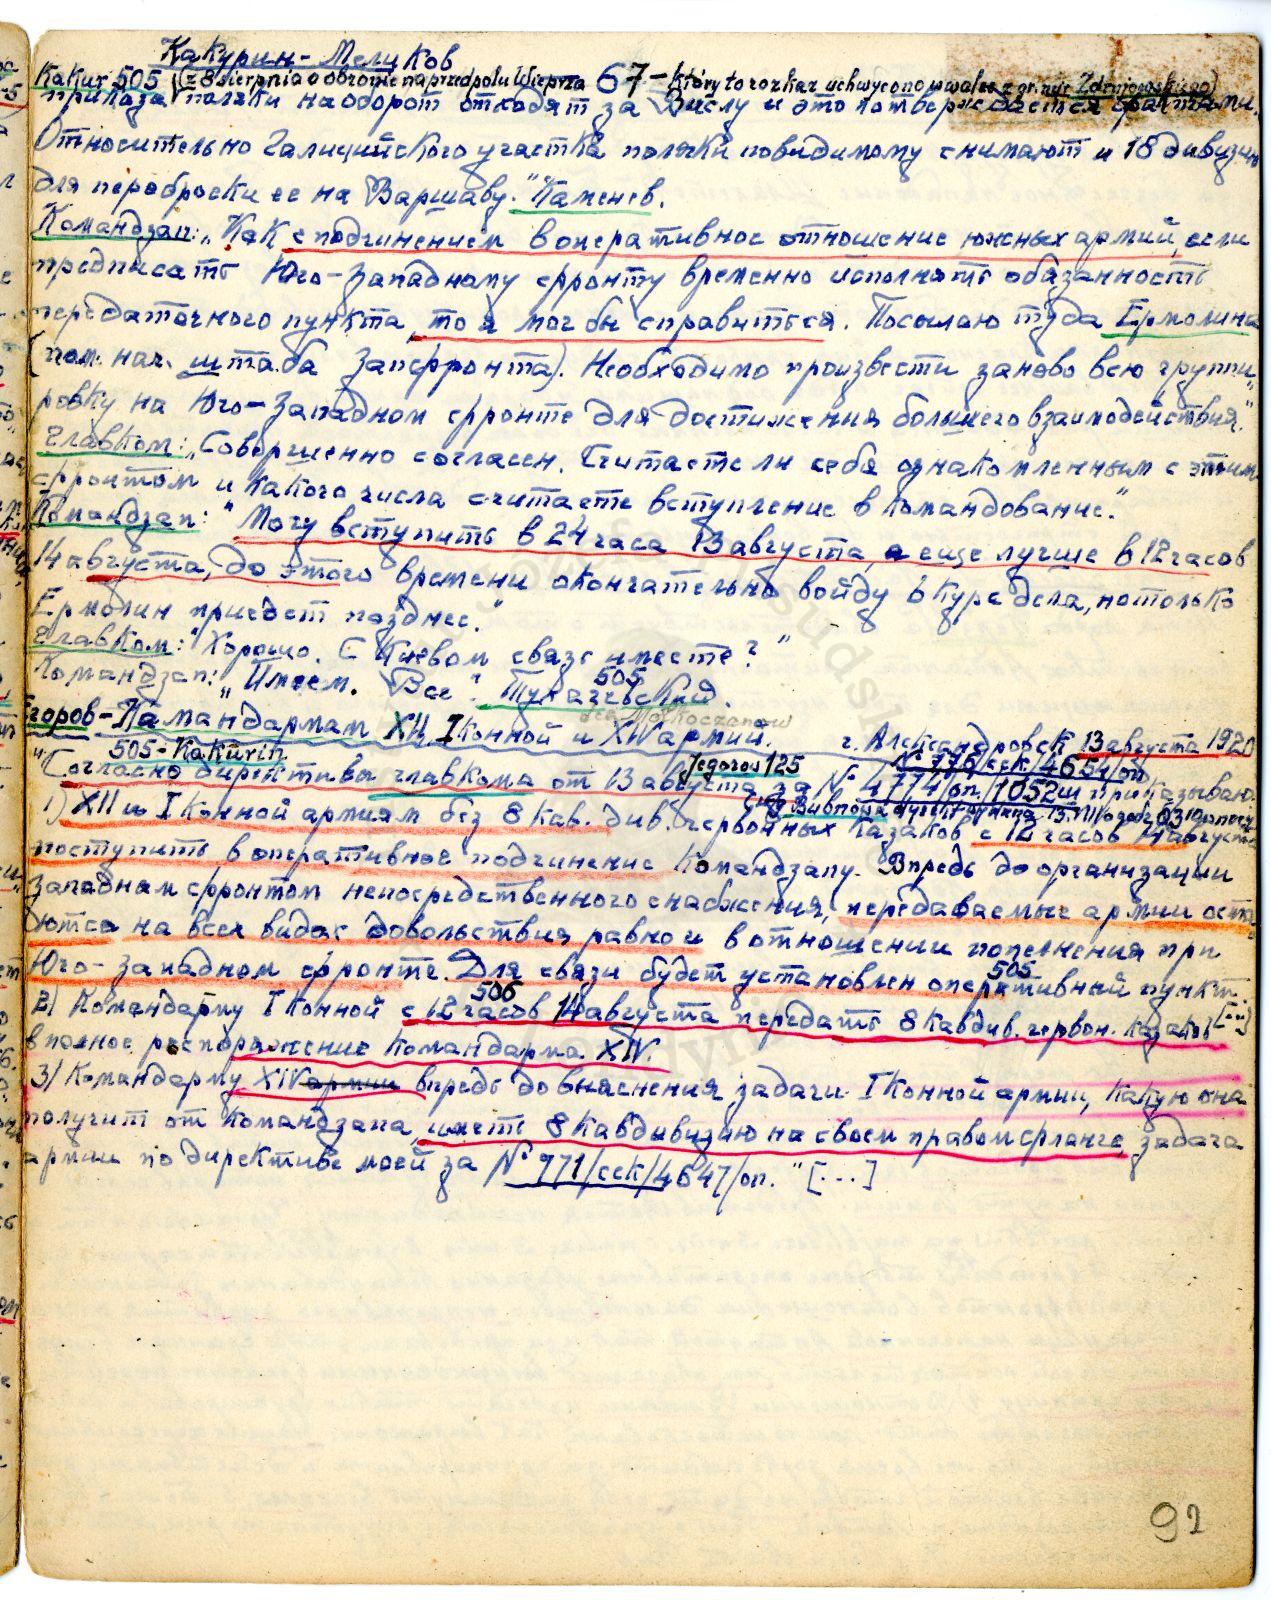 Какурин-Меликов
Kakur 505 (z 8 sierpnia o obronie na przedpolu Wieprza 67 - który to rozkaz uchwycono w walce z
приказа поляки наоборот отходят за Вислу и это потверждается фактами.
Относительно Галицийского участка поляки повидимому снимают и 18 дивизию
для переброски ее на Варшаву." Каменев.
Командзап: „Как с подчинением в оперативное отношение южных армий, если
предписать Юго-Западному фронту временно исполнять обязанность
передаточного пункта, то я мог бы справиться. Посылаю туда Ермолина
(пом. нач. штаба Запфронта). Необходимо произвести заново всю группи
ровку на Юго-Западном фронте для достижения большего взаимодействия."
Главком: „Совершенно согласен. Считаете ли себя ознакомленным с этим
фронтом и какого числа считаете вступление в командование."
Командзап: "Могу вступить в 24 часа 13 августа, а еще лучше в 12 часов
14 августа, до этого времени окончательно войду в курс дела, но только
Ермолин приедет позднее."
Главком: "Хорошо. С Киевом связь имеете?"
Командзап: „Имеем. Все". Тухачевский.
505
Егоров-Командармам XII, I Конной и XIV армий. г. Александровск 13 августа 1920
505-Kakurin Jegorow 125 № 776/сек/4654/оп
"Согласно директивы главкома от 13 августа за № 4774/оп/1052ш приказываю:
1) XII и I Конной армиям без 8 кав. див. червонных казаков с 12 часов 14 августа
поступить в оперативное подчинение Командзапу. Впредь до организации
Западным фронтом непосредственного снабжения, передаваемые армии оста
ются на всех видах довольствия равно и в отношении пополнения при
Юго-Западном фронте. Для связи будет установлен оперативный пункт.
506 505
2) Командарму I Конной с 12 часов 14 августа передать 8 кавдив. червон. казаков [...]
в полное распоряжение командарма XIV.
3) Командарму XIV армии впредь до выяснения задачи I Конной армии, какую она
получит от Командзапа, иметь 8 кавдивизию на своем правом фланге, задача
армии по директиве моей за № 771/сек/4647/оп." [...]
92